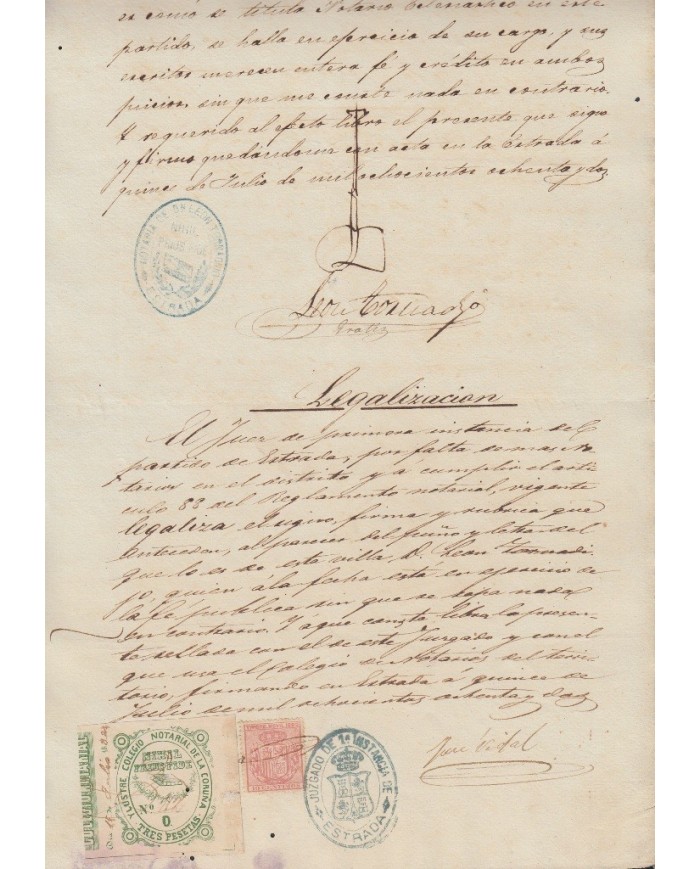 es como se titula Notario
partido, se halla en ejercicio de su cargo, y sus
escritos merecen entera fé y crédito en ambos
juicios, sin que me conste nada en contrario.
Y requerido al efecto libro el presente que signo
y firmo quedándome con acta en la Estrada á
quince de Julio de mil ochocientos ochenta y dos
NOTARIA DE
ESTRADA
Legalizacion
El Juez de primera instancia del
partido de Estrada, por falta de mas No
tarios en el distrito y a cumplir el arti
culo 88 del Reglamento notarial, vigente
legaliza el signo, firma y rubrica que
anteceden, al parecer del puño y letra del
que lo es de esta villa, D. Leon Torrradi
quien á la fecha está en ejercicio de
la fé publica sin que se sepa nada
en contrario. Y á que conste libra la presen-
te sellada con el de este Juzgado y con el
que usa el Colegio de Notarios del terri
torio, firmando en Estrada a quince de
Julio de mil ochocientos ochenta y dos
YLUSTRE COLEGIO NOTARIAL DE LA CORUÑA
NIHIL PRIUS FIDE
Nº
0
TRES PESETAS
JUZGADO DE 1ª INSTANCIA DE
ESTRADA
Vidal